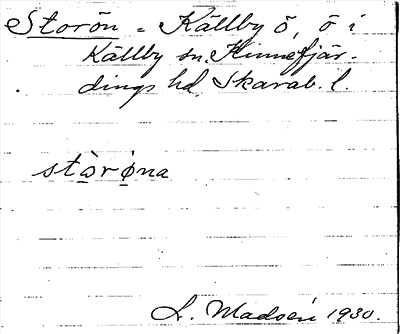 Storön = Källby ö, ö i
Källby sn, Kinnefjär-
dings hd, Skarab. l.
stòrøna
L. Madsén 1930.